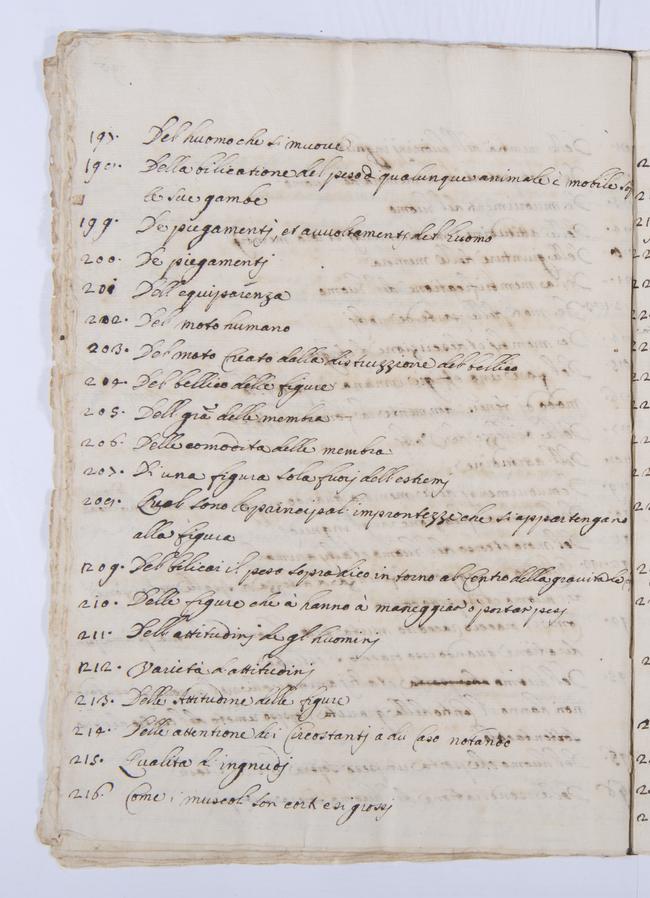 197. Del huomo che si muove
198. Della bilicatione del peso d qualunque animale è mobile sop
le sue gambe
199. De piegamentj et avvoltamentj dell huomo
200. De piegamentj
201 Dell equiparenza
202. Del moto humano
203. Del moto Creato dalla distruzzione del bellico
204. Del bellico delle figure
205. Dell grã delle membra
206. Delle comodita delle membra
207. Di una figura sola fuorj dell estremj
208. Quali sono le principali improntezze che si appartengano
alla figura
209. Del bilicar il peso sopradico intorno al Centro della gravita de
210. Delle figure che à hanno à maneggiar o portar pesj
211. Dell attitudinj de gl huominj
212. Varietà d attitudinj
213. Delle Attitudine delle figure
214. Delle attentione dei Circostantj a du caso notando
215. Qualita d ingnudj
216. Come i muscoli son corti e si grossj